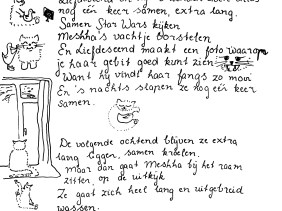 Liefdesend en
nog één keer samen, extra lang.
Samen Star Wars kijken
Meshha's vachtje borstelen
En Liefdesend maakt een foto waarop
je haar gebit goed kunt zien
Want hij vindt haar fangs zo mooi
En 's nachts slapen ze nog één keer
samen.
De volgende ochtend blijven ze extra
lang liggen, samen kroelen.
Maar dan gaat Meshha bij het raam
zitten, op de uitkijk
Ze gaat zich heel lang en uitgebreid
wassen.